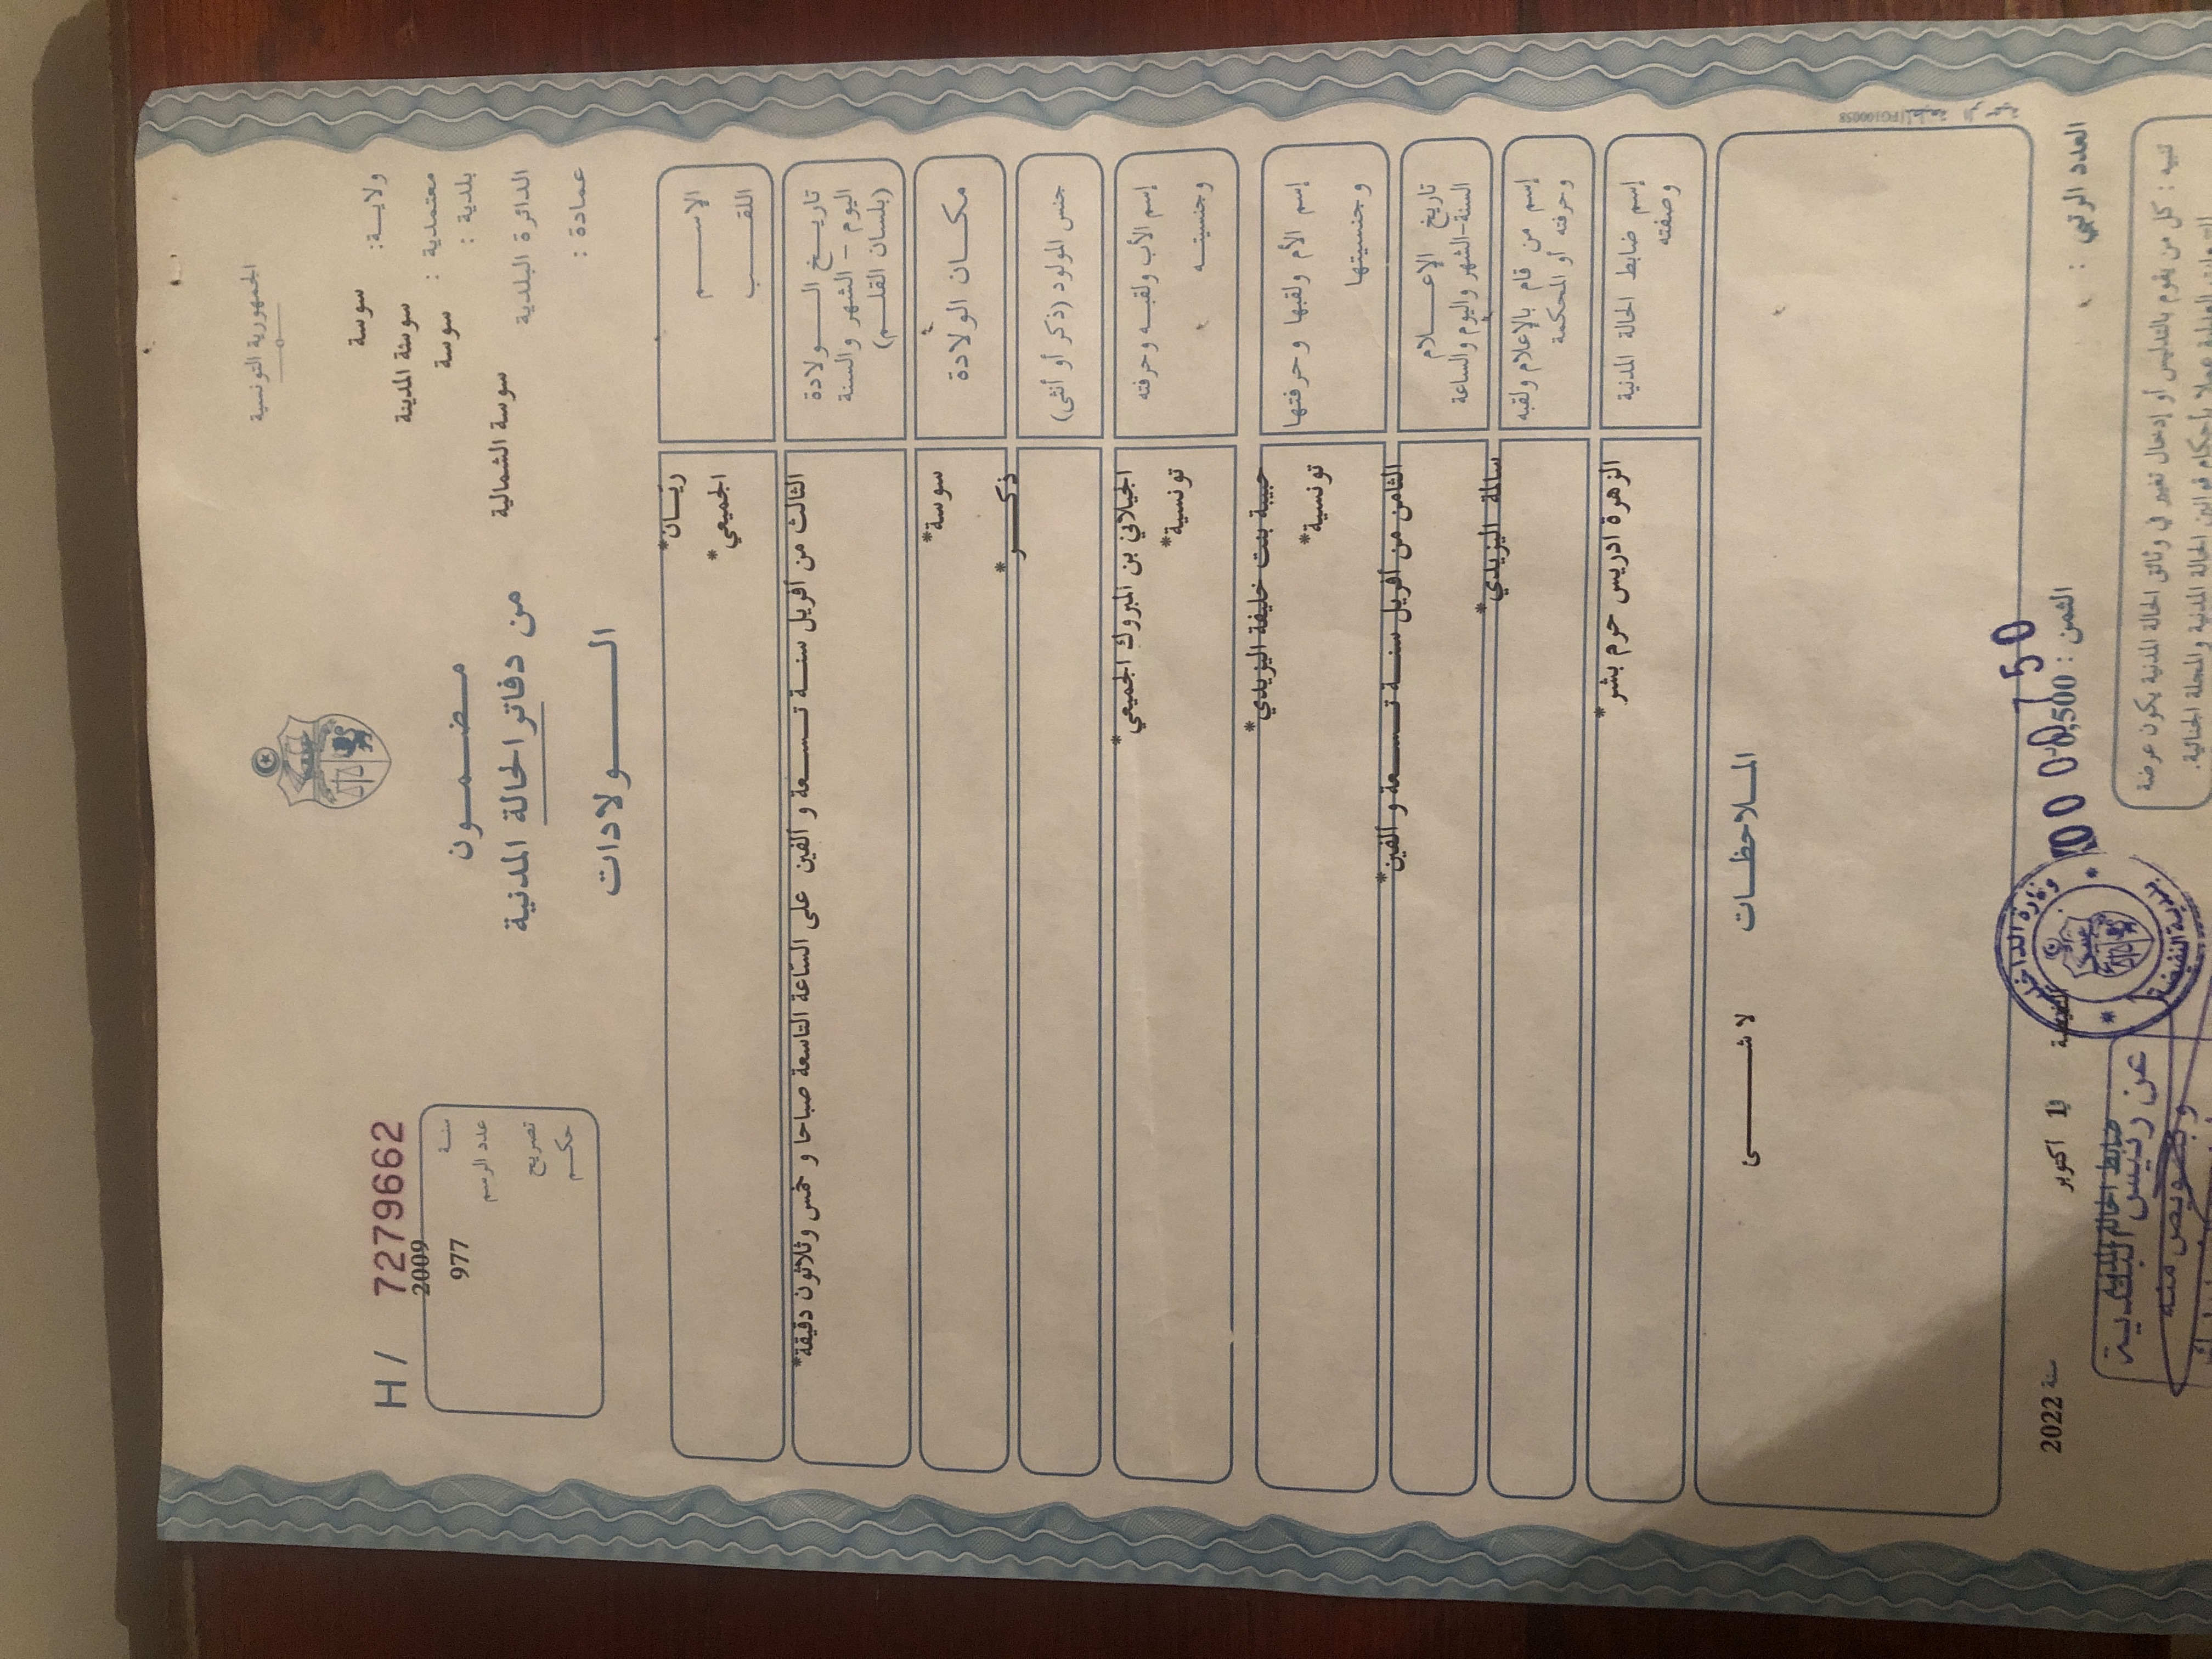 الجمهورية التونسية
ولاية: سوسة
معتمدية : سوسة المدينة
بلدية : سوسة
الدائرة البلدية سوسة الشمالية
عمادة :
مضمون
من دفاتر الحالة المدنية
الولادات
H / 7279662
سنة 2009
عدد الرسم 977
تصريح
حكم
الإسم ريان*
اللقب الجميعي*
تاريخ الولادة
اليوم - الشهر والسنة
(بلسان القلم)
الثالث من أفريل سنة تسعة و ألفين على الساعة التاسعة صباحا و خمس وثلاثون دقيقة*
مكان الولادة سوسة*
جنس المولود (ذكر أو أنثى) ذكر*
إسم الأب ولقبه وحرفته الجيلاني بن المبروك الجميعي*
وجنسيته تونسية*
إسم الأم ولقبها وحرفتها حبيبة بنت خليفة اليزيدي*
وجنسيتها تونسية*
تاريخ الإعلام
السنة-الشهر واليوم والساعة
الثامن من أفريل سنة تسعة و ألفين*
إسم من قام بالإعلام ولقبه
وحرفته أو المحكمة
سالمة اليزيدي*
إسم ضابط الحالة المدنية
وصفته
الزهرة ادريس حرم بشر*
الملاحظات
لا شئ
العدد الرتبي :
الثمن : 0,500
750
النفيضة في 1 أكتوبر سنة 2022
وزارة الداخلية
بلدية النفيضة
ضابط الحالة المدنية
عن رئيس البلدية
وبتفويض منه
تنبيه : كل من يقوم بالتدليس أو إدخال تغيير في وثائق الحالة المدنية يكون عرضة